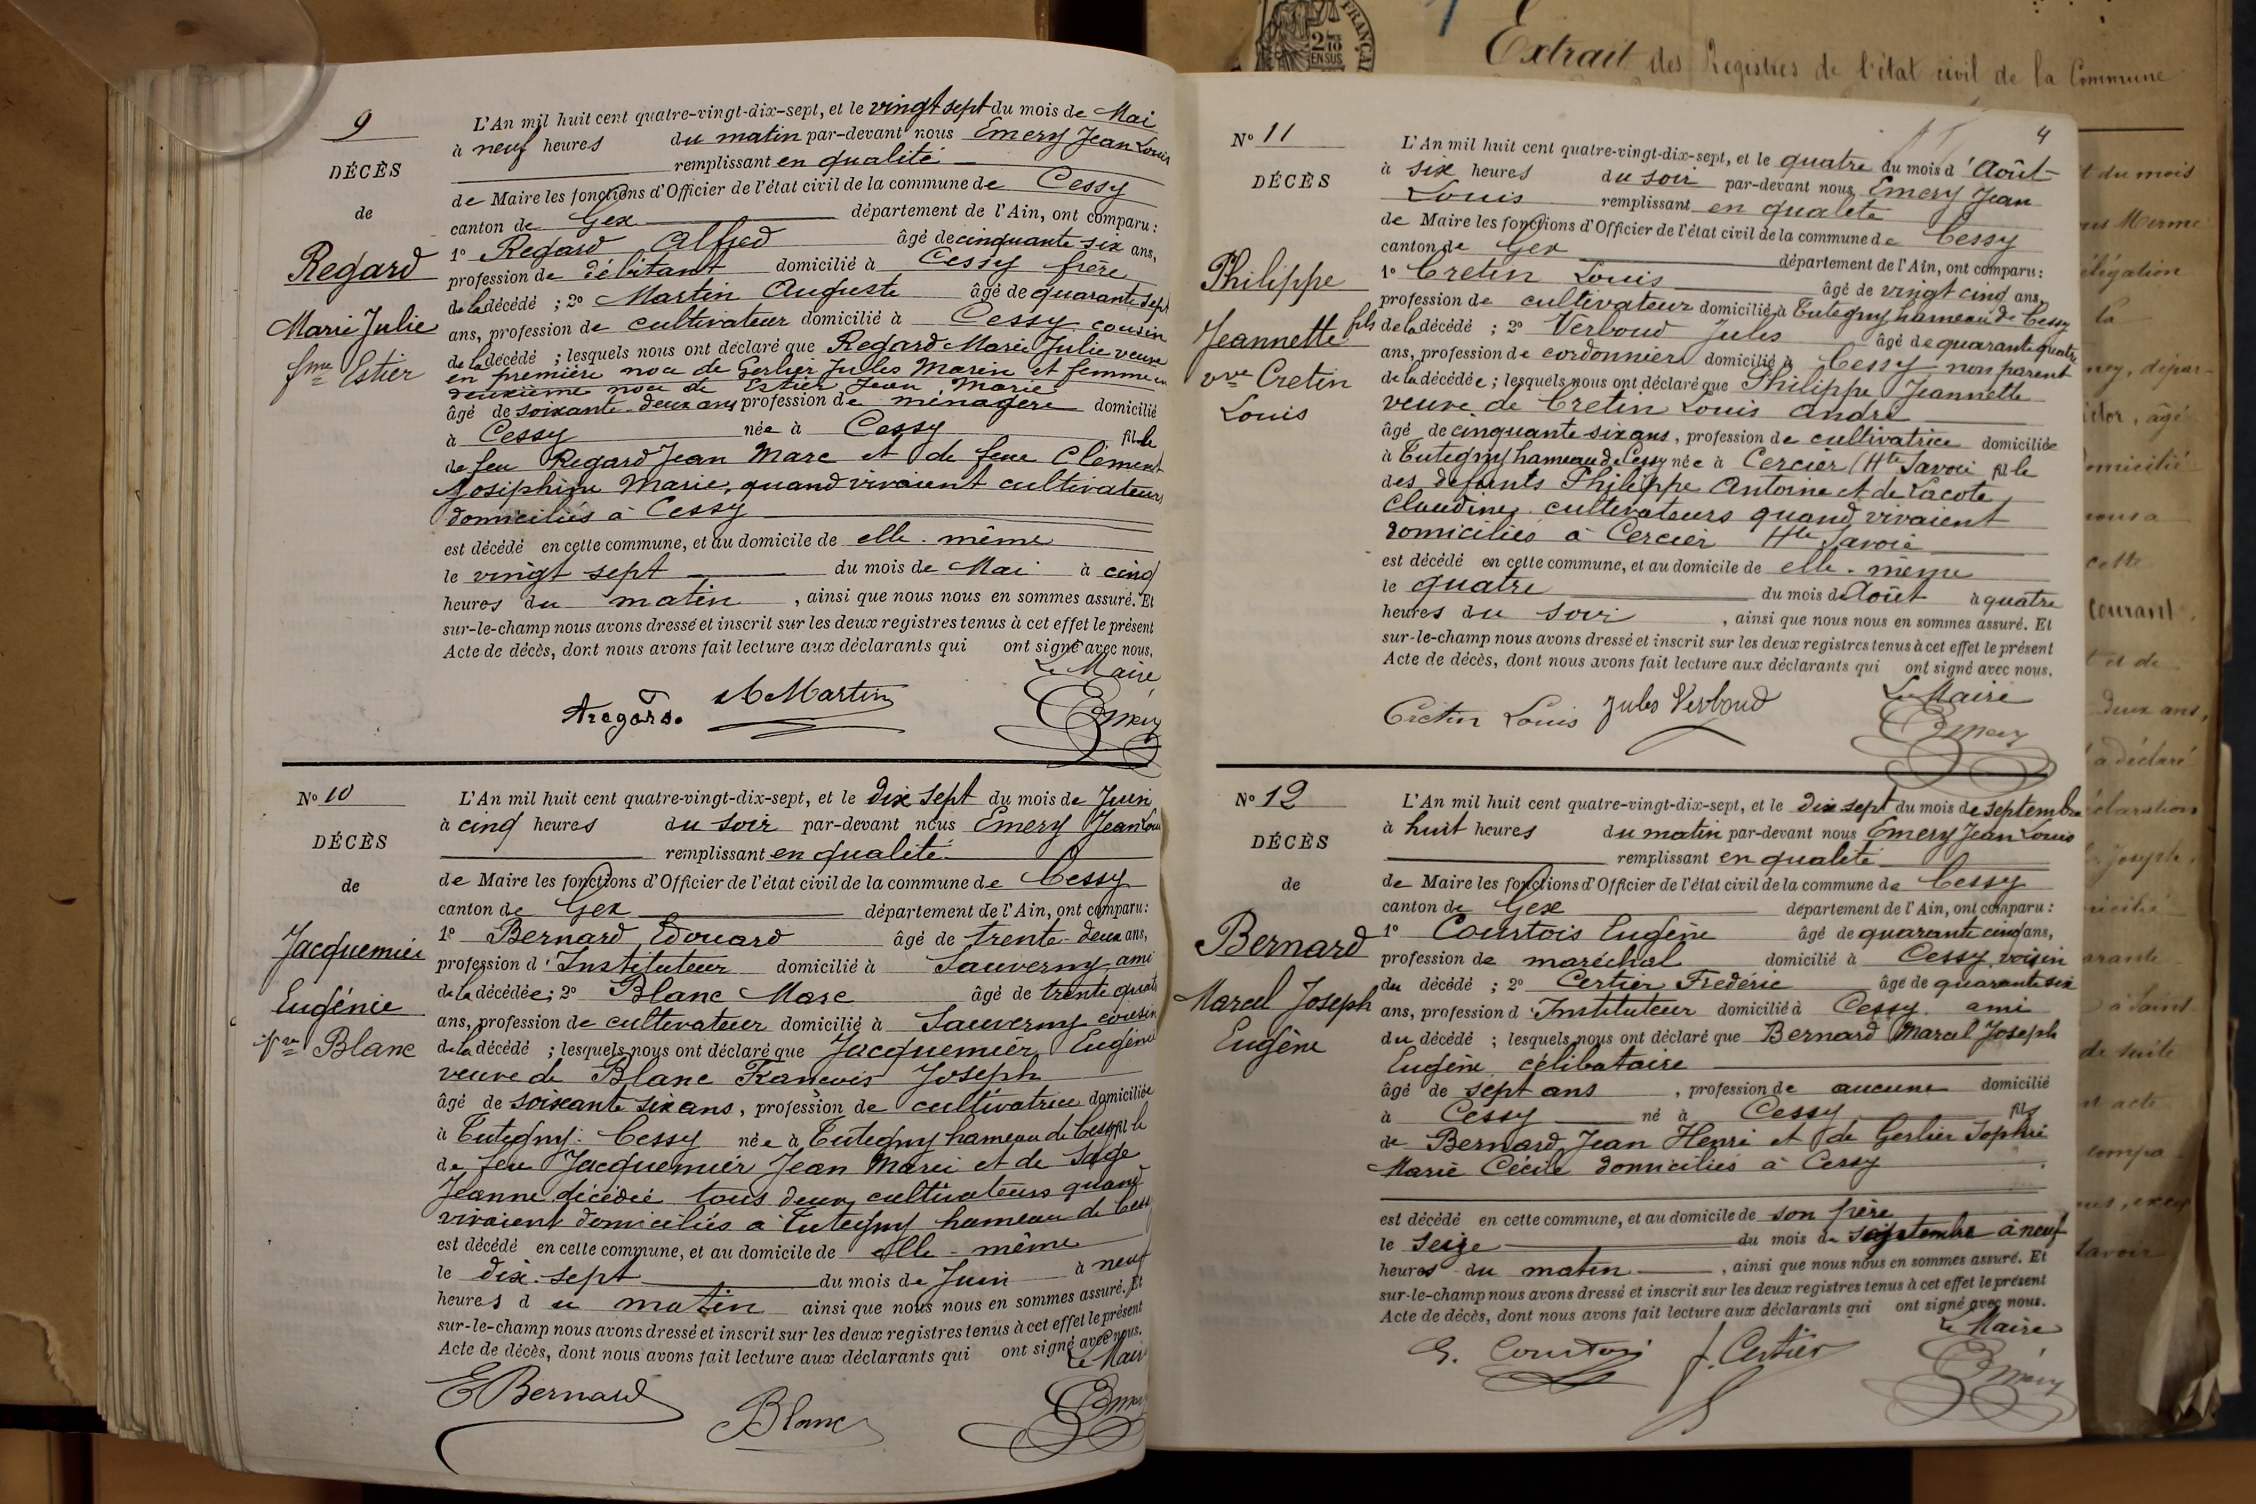 9
DÉCÈS
de
Regard
Marie Julie
fme Estier
L'An mil huit cent quatre-vingt-dix-sept, et le vingt sept du mois de Mai
à neuf heures du matin par-devant nous Emery Jean Louis
remplissant en qualité
de Maire les fonctions d'Officier de l'état civil de la commune de Cessy
canton de Gex département de l'Ain, ont comparu:
1o Regard Alfred âgé de cinquante six ans,
profession de débitant domicilié à Cessy frère
de la décédé ; 2o Martin Auguste âgé de quarante sept
ans, profession de cultivateur domicilié à Cessy cousin
de la décédé ; lesquels nous ont déclaré que Regard Marie Julie veuve
en première noce de Gerlier Jules Marin et femme en
deuxième noce de Estier Jean Marie
âgé de soixante-deux ans profession de ménagère domicilié
à Cessy née à Cessy fille
de feu Regard Jean Marc et de feue Clément
Josiphine Marie, quand vivaient cultivateurs
domiciliés à Cessy
est décédé en cette commune, et au domicile de elle-même
le vingt sept du mois de Mai à cinq
heures du matin, ainsi que nous nous en sommes assuré. Et
sur-le-champ nous avons dressé et inscrit sur les deux registres tenus à cet effet le présent
Acte de décès, dont nous avons fait lecture aux déclarants qui ont signé avec nous.
Le Maire
Aregard. A Martin Emery
No 10
DÉCÈS
de
Jacquemier
Eugénie
vve Blanc
L'An mil huit cent quatre-vingt-dix-sept, et le dix sept du mois de Juin
à cinq heures du soir par-devant nous Emery Jean Louis
remplissant en qualité
de Maire les fonctions d'Officier de l'état civil de la commune de Cessy
canton de Gex département de l'Ain, ont comparu:
1o Bernard Edouard âgé de trente-deux ans,
profession d'Instituteur domicilié à Sauverny ami
de la décédée; 2o Blanc Marc âgé de trente quatre
ans, profession de cultivateur domicilié à Sauverny cousin
de la décédé ; lesquels nous ont déclaré que Jacquemier Eugénie
veuve de Blanc François Joseph
âgé de soixante six ans, profession de cultivatrice domiciliée
à Tutegny-Cessy née à Tutegny hameau de Cessy fille
de feu Jacquemier Jean Marie et de Sage
Jeanne décédée tous deux cultivateurs quand
vivaient domiciliés à Tutegny hameau de Cessy
est décédé en cette commune, et au domicile de elle-même
le dix-sept du mois de Juin à neuf
heures du matin ainsi que nous nous en sommes assuré. Et
sur-le-champ nous avons dressé et inscrit sur les deux registres tenus à cet effet le présent
Acte de décès, dont nous avons fait lecture aux déclarants qui ont signé avec nous.
Le Maire
E Bernard Blanc Emery
Extrait des Registres de l'état civil de la Commune
4
No 11
DÉCÈS
de
Philippe
Jeannette
vve Cretin
Louis
L'An mil huit cent quatre-vingt-dix-sept, et le quatre du mois d'Août
à six heures du soir par-devant nous Emery Jean
Louis remplissant en qualité
de Maire les fonctions d'Officier de l'état civil de la commune de Cessy
canton de Gex département de l'Ain, ont comparu:
1o Cretin Louis âgé de vingt cinq ans,
profession de cultivateur domicilié à Tutegny hameau de Cessy
fils de la décédé ; 2o Verboud Jules âgé de quarante quatre
ans, profession de cordonnier domicilié à Cessy non parent
de la décédée; lesquels nous ont déclaré que Philippe Jeannette
veuve de Cretin Louis André
âgé de cinquante six ans, profession de cultivatrice domiciliée
à Tutegny hameau de Cessy née à Cercier (Hte Savoie fille
des défunts Philippe Antoine et de Lacote
Claudine, cultivateurs quand vivaient
domiciliés à Cercier Hte Savoie
est décédé en cette commune, et au domicile de elle-même
le quatre du mois d'Août à quatre
heures du soir, ainsi que nous nous en sommes assuré. Et
sur-le-champ nous avons dressé et inscrit sur les deux registres tenus à cet effet le présent
Acte de décès, dont nous avons fait lecture aux déclarants qui ont signé avec nous.
Le Maire
Cretin Louis Jules Verboud Emery
No 12
DÉCÈS
de
Bernard
Marcel Joseph
Eugène
L'An mil huit cent quatre-vingt-dix-sept, et le dix sept du mois de septembre
à huit heures du matin par-devant nous Emery Jean Louis
remplissant en qualité
de Maire les fonctions d'Officier de l'état civil de la commune de Cessy
canton de Gex département de l'Ain, ont comparu:
1o Courtois Eugène âgé de quarante cinq ans,
profession de maréchal domicilié à Cessy voisin
du décédé ; 2o Certier Frédéric âgé de quarante six
ans, profession d'Instituteur domicilié à Cessy ami
du décédé ; lesquels nous ont déclaré que Bernard Marcel Joseph
Eugène, célibataire
âgé de sept ans, profession de aucune domicilié
à Cessy né à Cessy fils
de Bernard Jean Henri et de Gerlier Sophie
Marie Cécile domiciliés à Cessy
est décédé en cette commune, et au domicile de son père
le seize du mois de septembre à neuf
heures du matin, ainsi que nous nous en sommes assuré. Et
sur-le-champ nous avons dressé et inscrit sur les deux registres tenus à cet effet le présent
Acte de décès, dont nous avons fait lecture aux déclarants qui ont signé avec nous.
Le Maire
E. Courtois f. Certier Emery